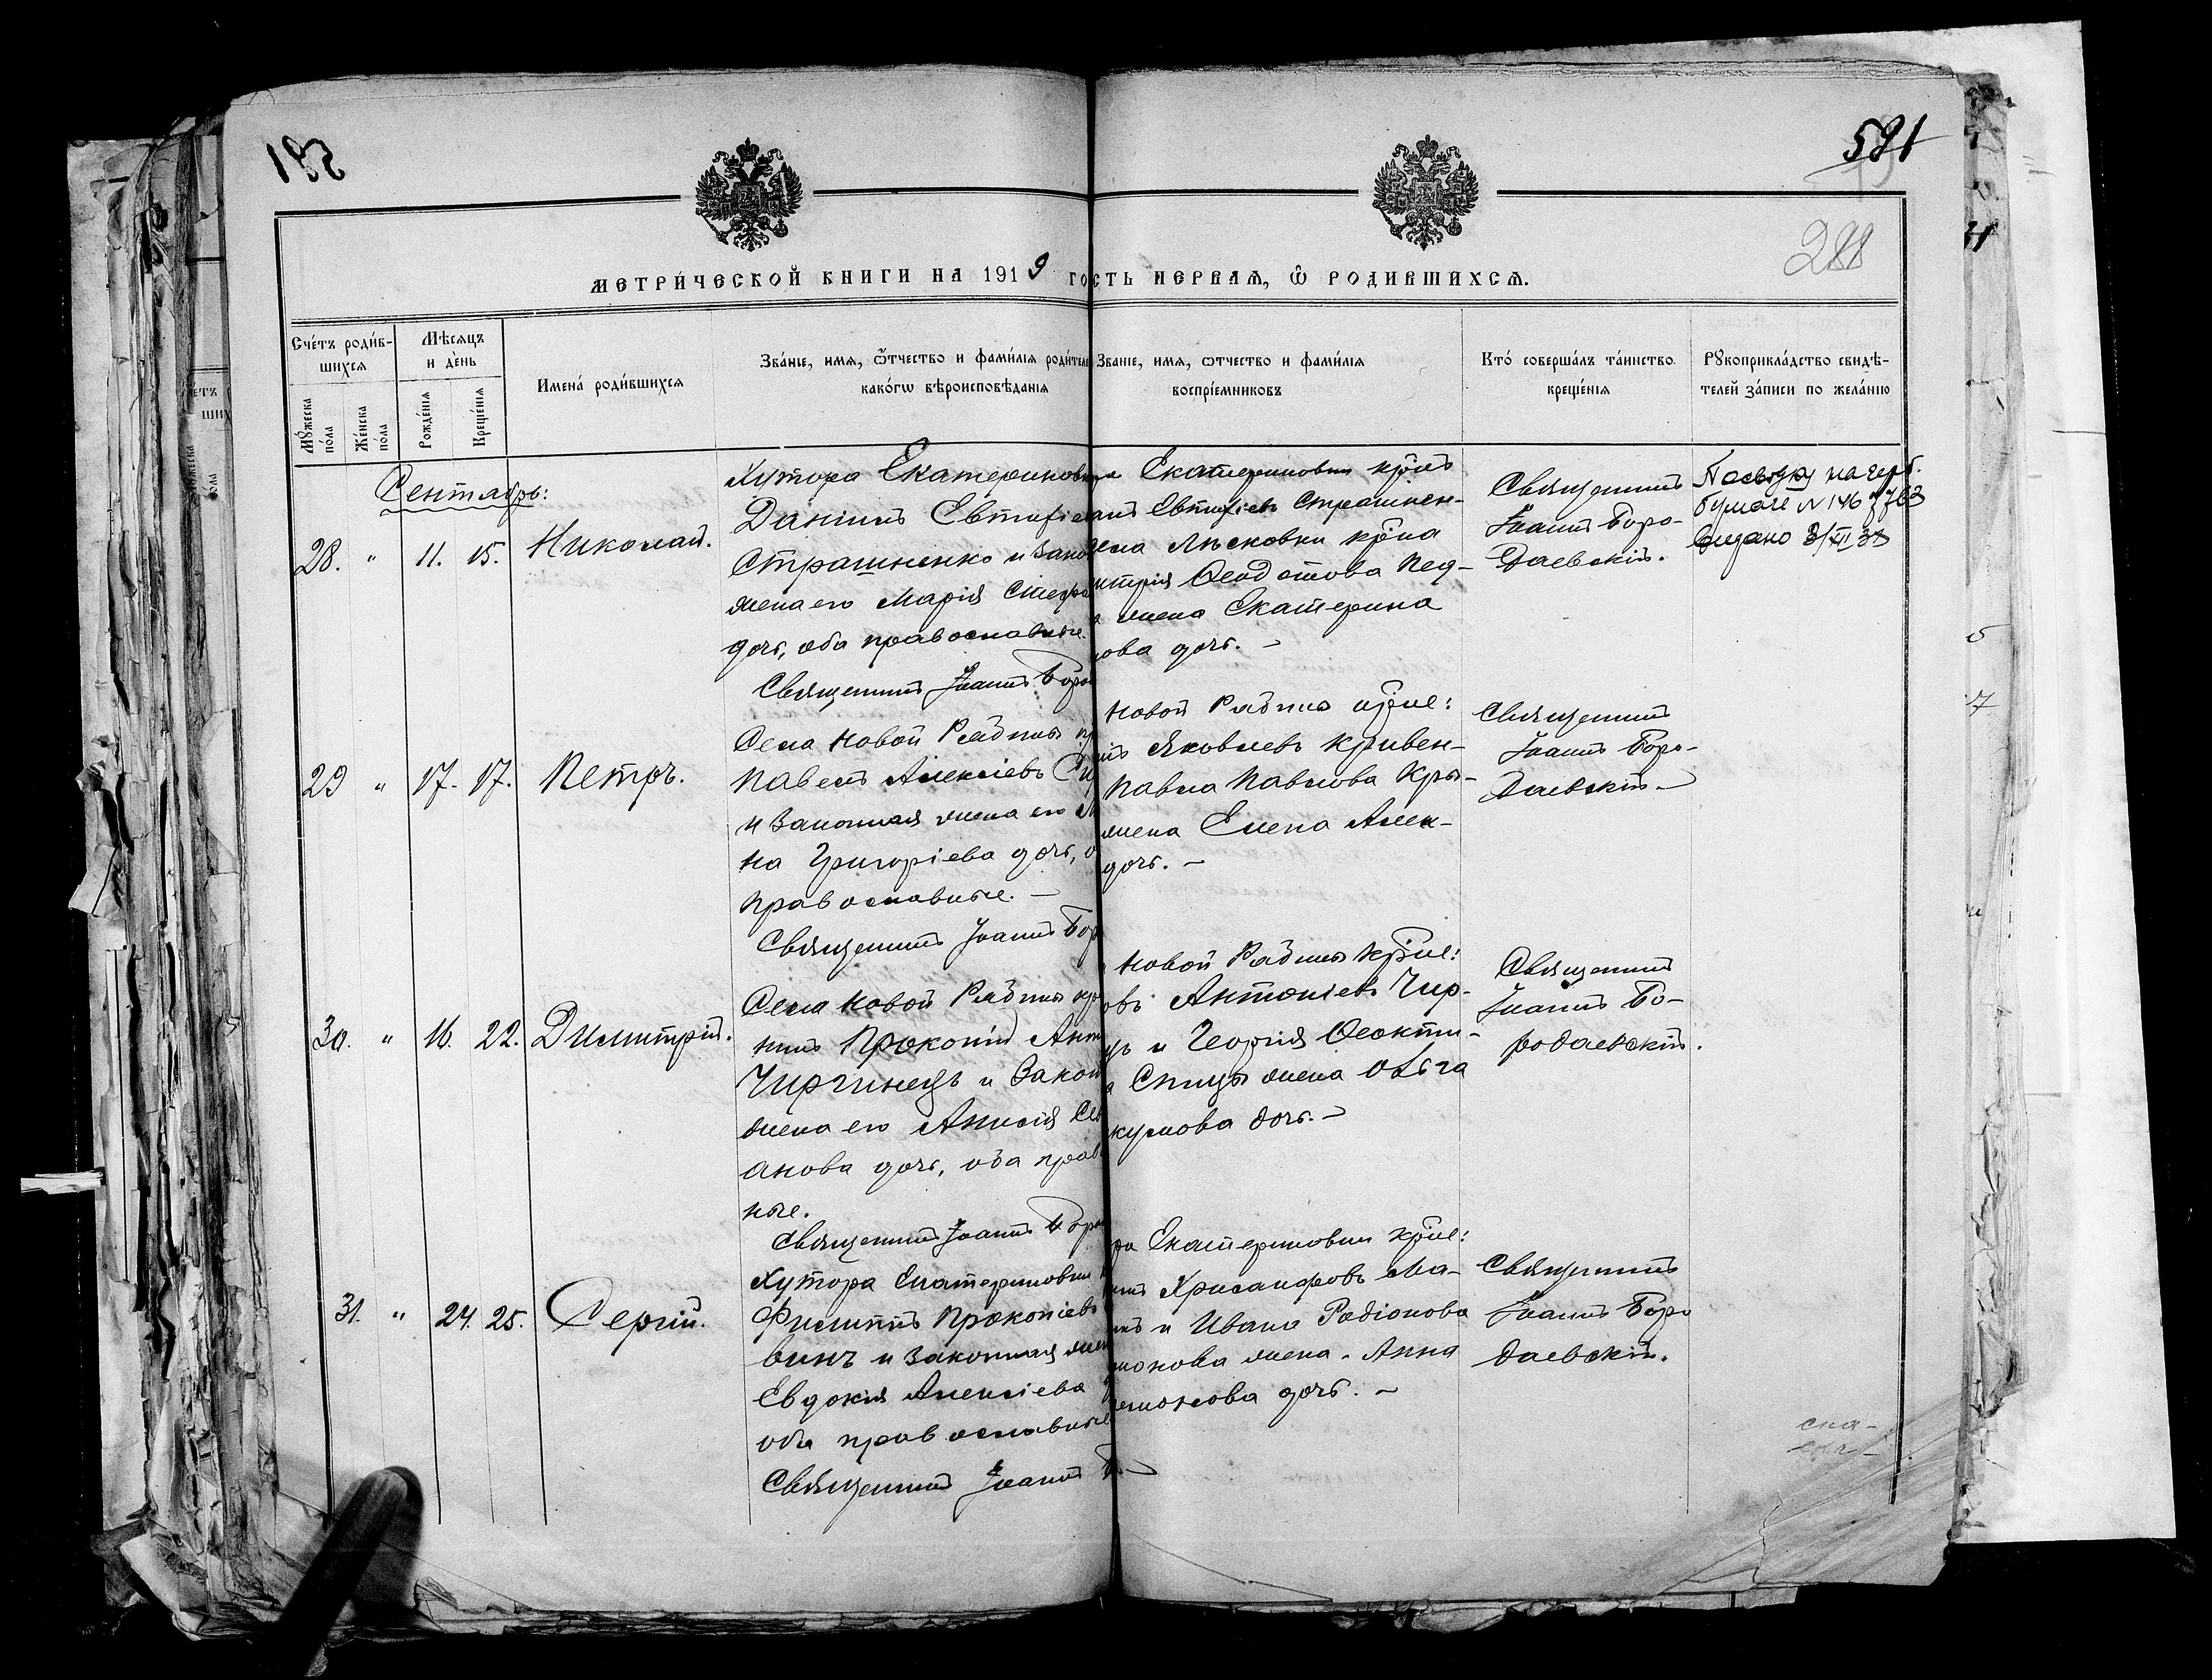 581
581
288
МЕТРИЧЕСКОЙ КНИГИ НА 1919 ГО
СТЬ ПЕРВАЯ, Ѿ РОДИВШИХСЯ.
Счетъ родив-
шихся
Мꙋжеска пола
Женска пола
Мѣсяцъ
и день
Рожденія
Крещенія
Имена родившихся
Званіе, имя, ѿтчество и фамилія родителе
какогѡ вѣроисповѣданія
Званіе, имя, ѡтчество и фамилія
воспріемниковъ
Кто совершалъ таинство
крещенія
Рꙋкоприкладство свидѣ-
телей записи по желанію
Сентябрь:
28. " 11. 15. Николай.
Хутора Екатериновк
Даніилъ Евтихіе
Страшненко и зако
жена его Марія Стефа
дочь, оба православные.
Священникъ Іоаннъ Боро
Екатериновки крѣпъ
Евтихіевъ Страшнен-
Лѣсковки
Ѳеодотова Пед-
жена Екатерина
ова дочь. –
Священникъ
Іоаннъ Боро-
даевскій.
на герб.
бумаге N 146
выдано
29 " 17. 17. Петръ.
Села Новой Рябины
Павелъ Алексіевъ
и законная жена его
на Григоріева дочь, о
православные. –
Священникъ Іоаннъ Бор
Новой Рябины
Яковлевъ Кривен-
Павла Павлова Кры-
жена Елена Алек-
дочь. –
Священникъ
Іоаннъ Боро-
даевскій –
30. " 16. 22. Димитрій.
Села Новой Рябины
нинъ Прокопій Анто
Чиргинецъ и закон
жена его Анисія
анова дочь, оба прав
ные.
Священникъ Іоаннъ Боро
Новой Рябины
овъ Антоніевъ Чир-
цъ и Георгія Ѳеокти-
Спицы жена Ольга
кумова дочь. –
Священникъ
Іоаннъ Бо-
родаевскій.
31. " 24. 25. Сергій.
Хутора Екатериновки
Филиппъ Прокопіевъ
винъ и законная жен
Евдокія Алексіева
оба православные
Священникъ Іоаннъ Б. –
Екатериновки
Хрисанфовъ Ма-
и Ивана Родіонова
жена – Анна
дочь. –
Священникъ
Іоаннъ Боро
даевскій.